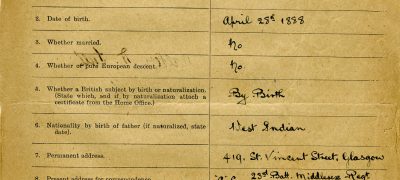 2. Date of birth. April 28th 1888
3. Whether married. No
4. Whether of pure European descent. No
5. Whether a British subject by birth or naturalization.
(State which, and if by naturalization attach a
certificate from the Home Office.) By Birth
6. Nationality by birth of father (if naturalized, state
date). West Indian
7. Permanent address. 419. St. Vincent Street, Glasgow
8. Present address for correspondence. 23rd Batt. Middlesex Regt